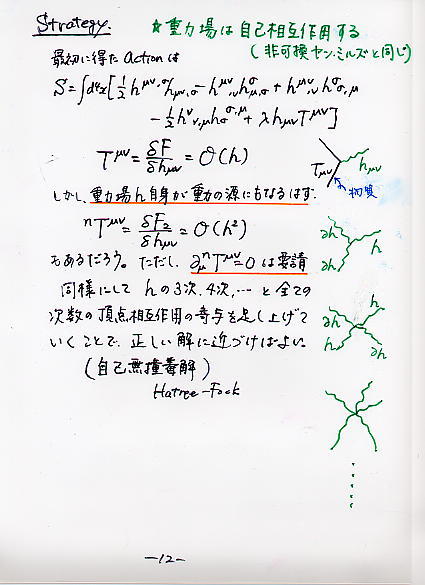 Strategy. ☆重力場は自己相互作用する
(非可換ヤン・ミルズと同じ)
最初に得た Action は
S=∫d⁴x[½ h^{μν,σ}h_{μν,σ} - h^{μν}_{,ν} h^σ_{μ,σ} + h^{μν}_{,ν} h^σ_{σ,μ}
-½ h^ν_{ν,μ} h^{σ,μ}_σ + λ h_{μν} T^{μν}]
T^{μν} = δF/δh_{μν} = O(h)
T_{μν} h_{μν}
物質
しかし、重力場 h 自身が重力の源にもなるはず.
ⁿT^{μν} = δF₂/δh_{μν} = O(h²)
∂h h
∂h
もあるだろう。ただし、∂_μ ⁿT^{μν}=0 は要請
同様にして hの3次,4次,… と全ての
次数の頂点相互作用の寄与を足し上げて
いくことで、正しい解に近づけばよい。
∂h h
h ∂h
(自己無撞着解)
Hatree-Fock
-12-